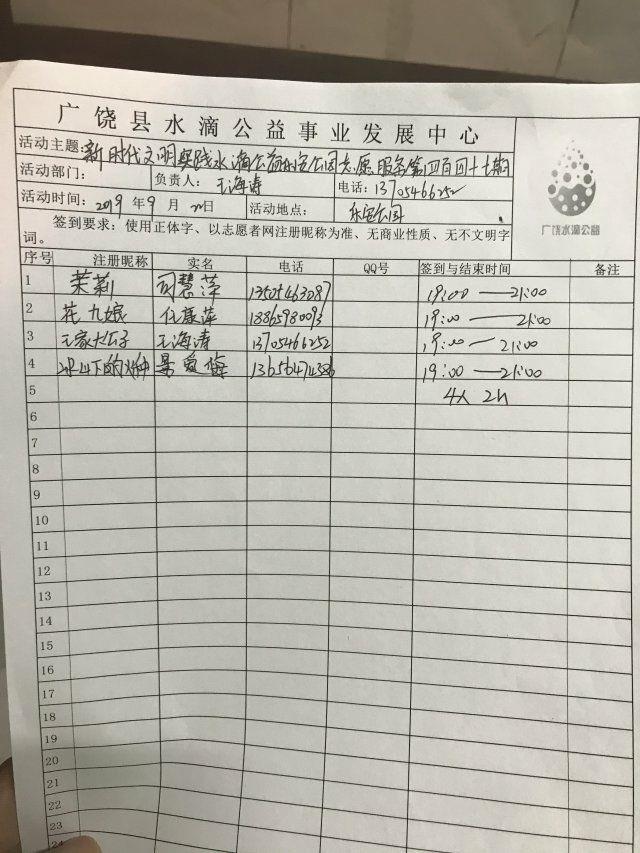 广饶县水滴公益事业发展中心
活动主题:新时代文明实践水滴公益乐安公园志愿服务第四百四十七期
活动部门: 负责人:王海涛 电话:13705466252
活动时间: 2019年9月 日 活动地点: 乐安公园
签到要求:使用正体字、以志愿者网注册昵称为准、无商业性质、无不文明字
词。
广饶水滴公益
序号 注册昵称 实名 电话 QQ号 签到与结束时间 备注
1 茉莉 司慧萍 13505463087 19:00——21:00
2 花九娘 任康萍 18865980093 19:00——21:00
3 王家大公子 王海涛 13705466252 19:00——21:00
4 冰山下的火种 景爱梅 13656474386 19:00——21:00
5 4人 2h
6
7
8
9
10
11
12
13
14
15
16
17
18
19
20
21
22
23
24